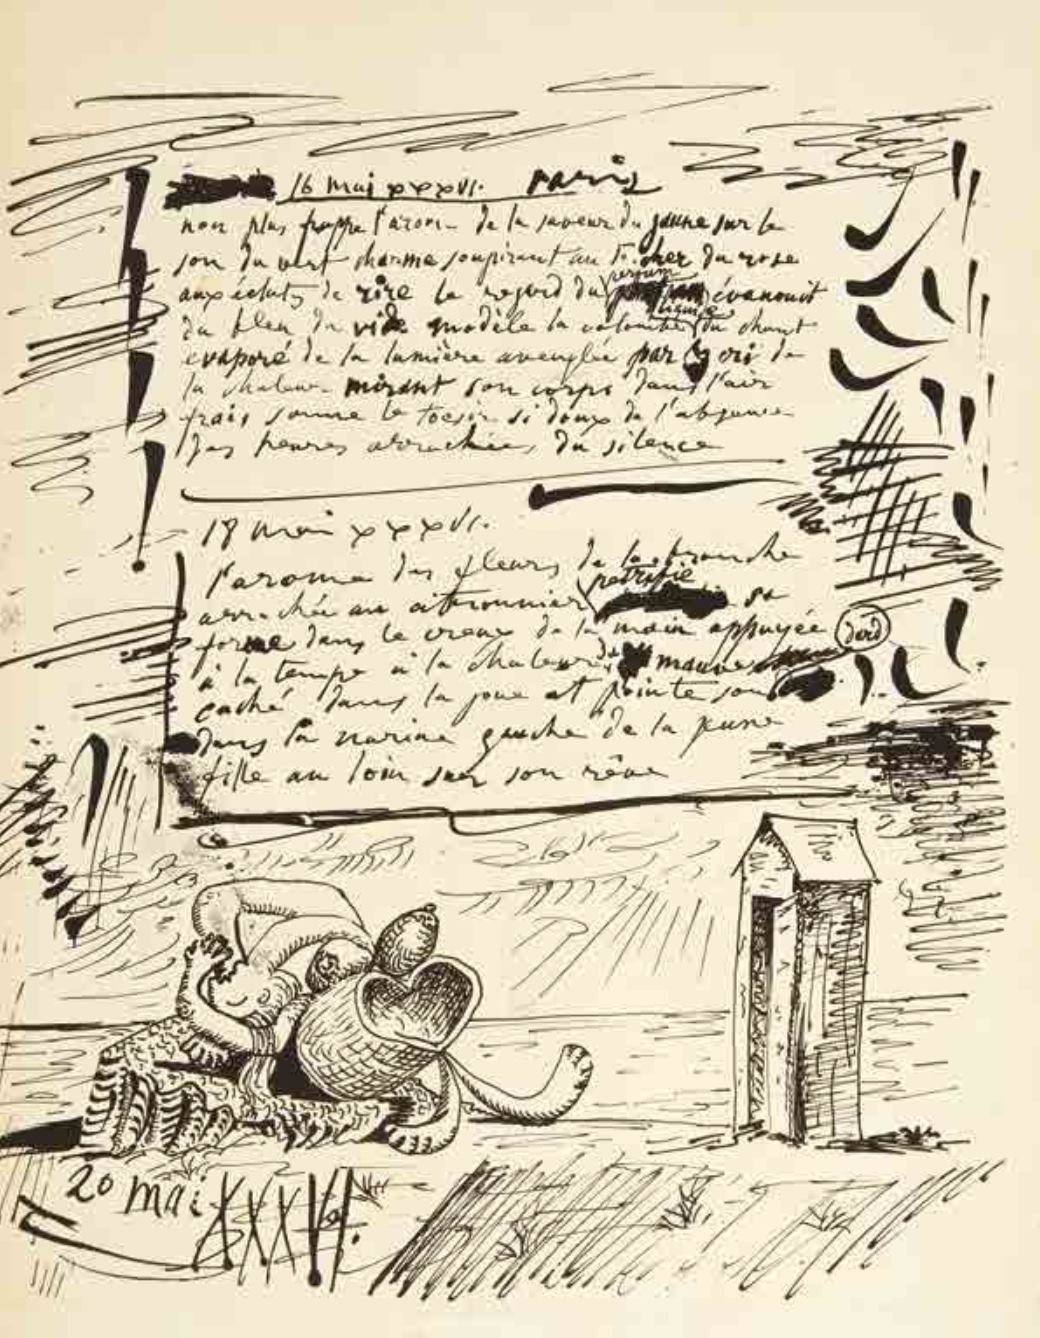 16 mai XXXVI. Paris
non plus frappe l'arome de la saveur du jaune sur le
son du vert charme soupirant au toucher du rose
aux éclats de rire le regard du parfum évanouit
du bleu du vide modèle la colombe du chant
évaporé de la lumière aveuglée par cri de
la chaleur mirant son corps dans l'air
frais sonne le tocsin si doux de l'absence
des heures arrachées du silence
18 mai XXXVI.
l'arome des fleurs de la branche
arrachée au citronnier petrifié se
forme dans le creux de la main appuyée
à la tempe à la chaleur du mauve
caché dans la joue et pointe son dard
dans la narine gauche de la jeune
fille au loin sur son rêve
20 mai XXXVI.